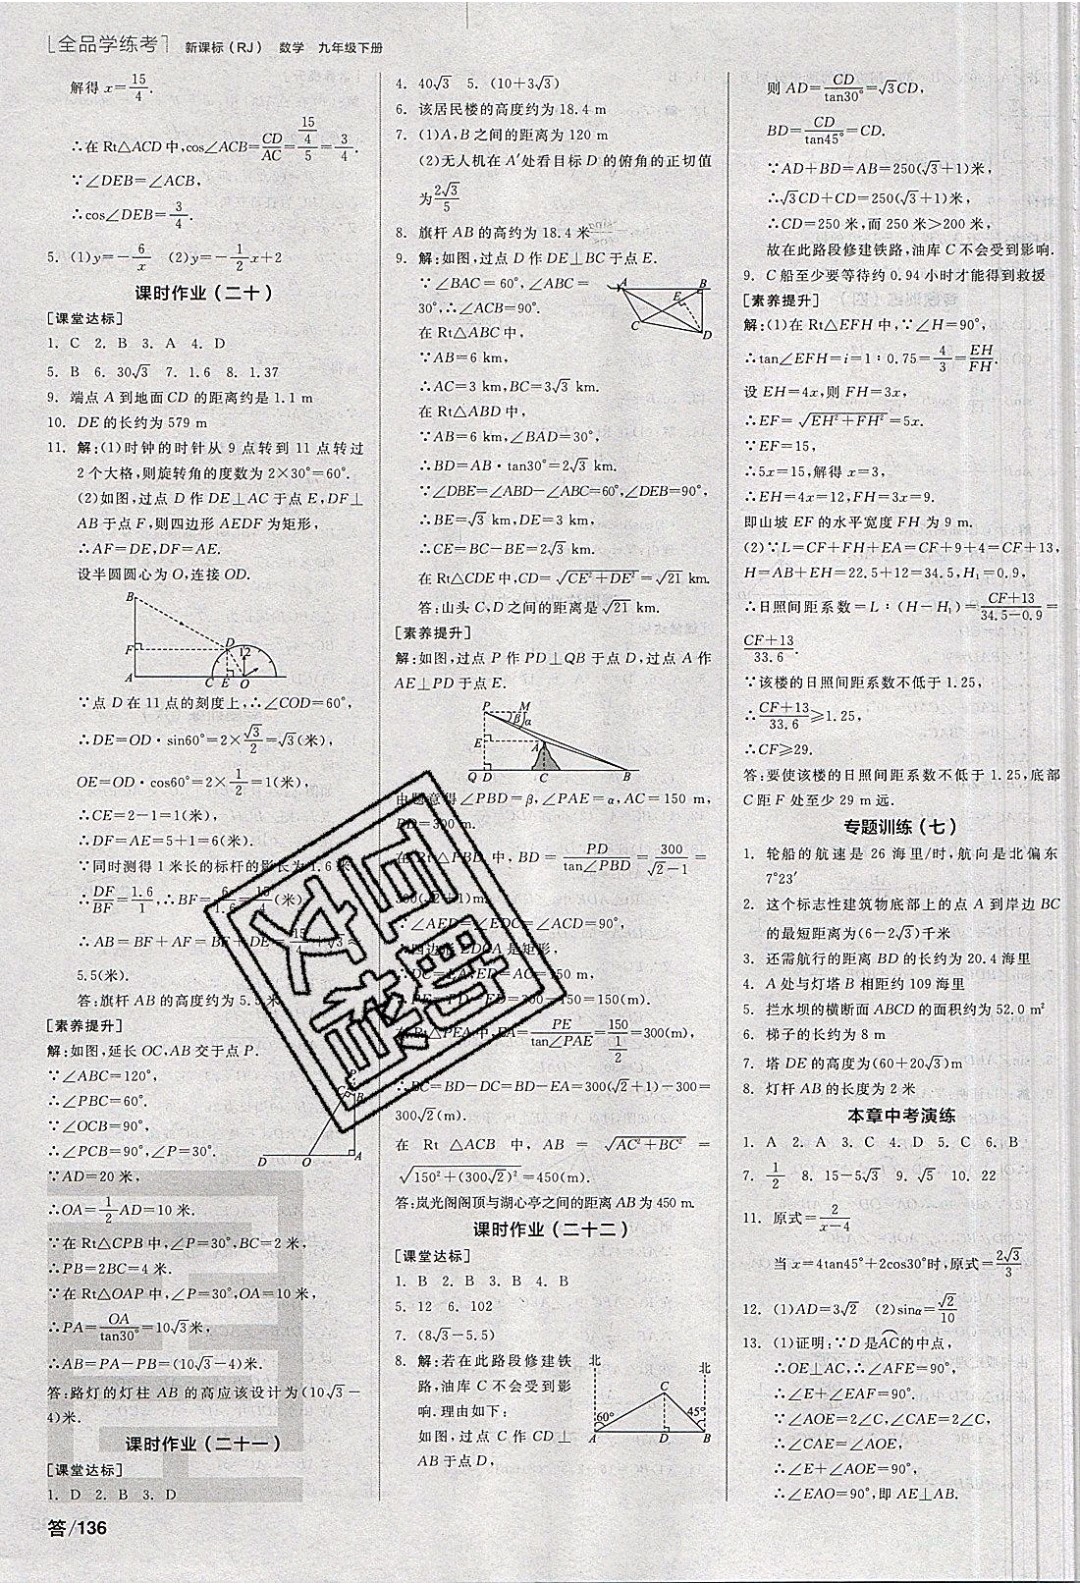 [全品学练考] 新课标(RJ) 数学 九年级下册
解得 x=15/4.
∴在 Rt△ACD 中,cos∠ACB=CD/AC=(15/4)/5=3/4.
∵∠DEB=∠ACB,
∴cos∠DEB=3/4.
5. (1)y=-6/x (2)y=-1/2x+2
课时作业(二十)
[课堂达标]
1. C 2. B 3. A 4. D
5. B 6. 30√3 7. 1.6 8. 1.37
9. 端点 A 到地面 CD 的距离约是 1.1 m
10. DE 的长约为 579 m
11. 解:(1)时钟的时针从 9 点转到 11 点转过
2 个大格,则旋转角的度数为 2×30°=60°.
(2)如图,过点 D 作 DE⊥AC 于点 E,DF⊥
AB 于点 F,则四边形 AEDF 为矩形,
∴AF=DE,DF=AE.
设半圆圆心为 O,连接 OD.
B
F
D
12
A
C E O
∵点 D 在 11 点的刻度上,∴∠COD=60°,
∴DE=OD·sin60°=2×√3/2=√3(米),
OE=OD·cos60°=2×1/2=1(米),
∴CE=2-1=1(米),
∴DF=AE=5+1=6(米).
∵同时测得 1 米长的标杆的影长为 1.6 米,
∴DF/BF=1.6/1,∴BF=6/1.6=15/4(米),
∴AB=BF+AF=BF+DE=15/4+√3≈
5.5(米).
答:旗杆 AB 的高度约为 5.5 米.
[素养提升]
解:如图,延长 OC,AB 交于点 P.
∵∠ABC=120°,
∴∠PBC=60°.
∵∠OCB=90°,
∴∠PCB=90°,∠P=30°.
∵AD=20 米,
∴OA=1/2AD=10 米.
∵在 Rt△CPB 中,∠P=30°,BC=2 米,
∴PB=2BC=4 米.
∵在 Rt△OAP 中,∠P=30°,OA=10 米,
∴PA=OA/tan30°=10√3米,
∴AB=PA-PB=(10√3-4)米.
答:路灯的灯柱 AB 的高应该设计为(10√3-
4)米.
D O A
课时作业(二十一)
[课堂达标]
1. D 2. B 3. D
4. 40√3 5. (10+3√3)
6. 该居民楼的高度约为 18.4 m
7. (1)A,B 之间的距离为 120 m
(2)无人机在 A′处看目标 D 的俯角的正切值
为2√3/5
8. 旗杆 AB 的高约为 18.4 米
9. 解:如图,过点 D 作 DE⊥BC 于点 E.
∵∠BAC=60°,∠ABC=
30°,∴∠ACB=90°.
在 Rt△ABC 中,
∵AB=6 km,
∴AC=3 km,BC=3√3 km.
在 Rt△ABD 中,
∵AB=6 km,∠BAD=30°,
∴BD=AB·tan30°=2√3 km.
∵∠DBE=∠ABD-∠ABC=60°,∠DEB=90°,
∴BE=√3 km,DE=3 km,
∴CE=BC-BE=2√3 km.
在 Rt△CDE 中,CD=√(CE²+DE²)=√21 km.
答:山头 C,D 之间的距离是√21 km.
A B
E
C
D
[素养提升]
解:如图,过点 P 作 PD⊥QB 于点 D,过点 A 作
AE⊥PD 于点 E.
P M
β α
E A
Q D C B
由题意得∠PBD=β,∠PAE=α,AC=150 m,
PD=300 m.
在 Rt△PBD 中,BD=PD/tan∠PBD=300/(√2-1)=
300(√2+1)m.
∵∠AED=∠EDC=∠ACD=90°,
∴四边形 EDCA 是矩形,
∴DC=EA,ED=AC=150 m,
∴PE=PD-ED=300-150=150(m).
在 Rt△PEA 中,EA=PE/tan∠PAE=150/(1/2)=300(m),
∴BC=BD-DC=BD-EA=300(√2+1)-300=
300√2(m).
在 Rt △ACB 中, AB = √(AC²+BC²) =
√(150²+(300√2)²)=450(m).
答:岚光阁阁顶与湖心亭之间的距离 AB 为 450 m.
课时作业(二十二)
[课堂达标]
1. B 2. B 3. B 4. B
5. 12 6. 102
7. (8√3-5.5)
8. 解:若在此路段修建铁
路,油库 C 不会受到影
响.理由如下:
如图,过点 C 作 CD⊥
AB 于点 D,
北 北
C
60° 45°
A D B
则 AD=CD/tan30°=√3CD,
BD=CD/tan45°=CD.
∵AD+BD=AB=250(√3+1)米,
∴√3CD+CD=250(√3+1)米,
∴CD=250 米,而 250 米>200 米,
故在此路段修建铁路,油库 C 不会受到影响.
9. C 船至少要等待约 0.94 小时才能得到救援
[素养提升]
解:(1)在 Rt△EFH 中,∵∠H=90°,
∴tan∠EFH=i=1∶0.75=4/3=EH/FH.
设 EH=4x,则 FH=3x,
∴EF=√(EH²+FH²)=5x.
∵EF=15,
∴5x=15,解得 x=3,
∴EH=4x=12,FH=3x=9.
即山坡 EF 的水平宽度 FH 为 9 m.
(2)∵L=CF+FH+EA=CF+9+4=CF+13,
H=AB+EH=22.5+12=34.5,H₁=0.9,
∴日照间距系数=L∶(H-H₁)=(CF+13)/(34.5-0.9)=
(CF+13)/33.6.
∵该楼的日照间距系数不低于 1.25,
∴(CF+13)/33.6≥1.25,
∴CF≥29.
答:要使该楼的日照间距系数不低于 1.25,底部
C 距 F 处至少 29 m 远.
专题训练(七)
1. 轮船的航速是 26 海里/时,航向是北偏东
7°23′
2. 这个标志性建筑物底部上的点 A 到岸边 BC
的最短距离为(6-2√3)千米
3. 还需航行的距离 BD 的长约为 20.4 海里
4. A 处与灯塔 B 相距约 109 海里
5. 拦水坝的横断面 ABCD 的面积约为 52.0 m²
6. 梯子的长约为 8 m
7. 塔 DE 的高度为(60+20√3)m
8. 灯杆 AB 的长度为 2 米
本章中考演练
1. A 2. A 3. C 4. D 5. C 6. B
7. 1/2 8. 15-5√3 9. √5 10. 22
11. 原式=2/(x-4)
当 x=4tan45°+2cos30°时,原式=2√3/3
12. (1)AD=3√2 (2)sinα=√2/10
13. (1)证明:∵D 是AC的中点,
∴OE⊥AC,∴∠AFE=90°,
∴∠E+∠EAF=90°.
∵∠AOE=2∠C,∠CAE=2∠C,
∴∠CAE=∠AOE,
∴∠E+∠AOE=90°,
∴∠EAO=90°,即 AE⊥AB.
答/136